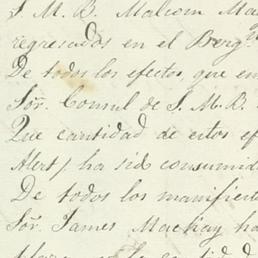 S. M. B. Malcom Mac
regresados en el Berg.
De todos los efectos, que em
Sor. Consul de S. M. B.
Que cantidad de estos ef
Alert, ha sido consumid
De todos los manifiesto
Sor. James Mackay ha